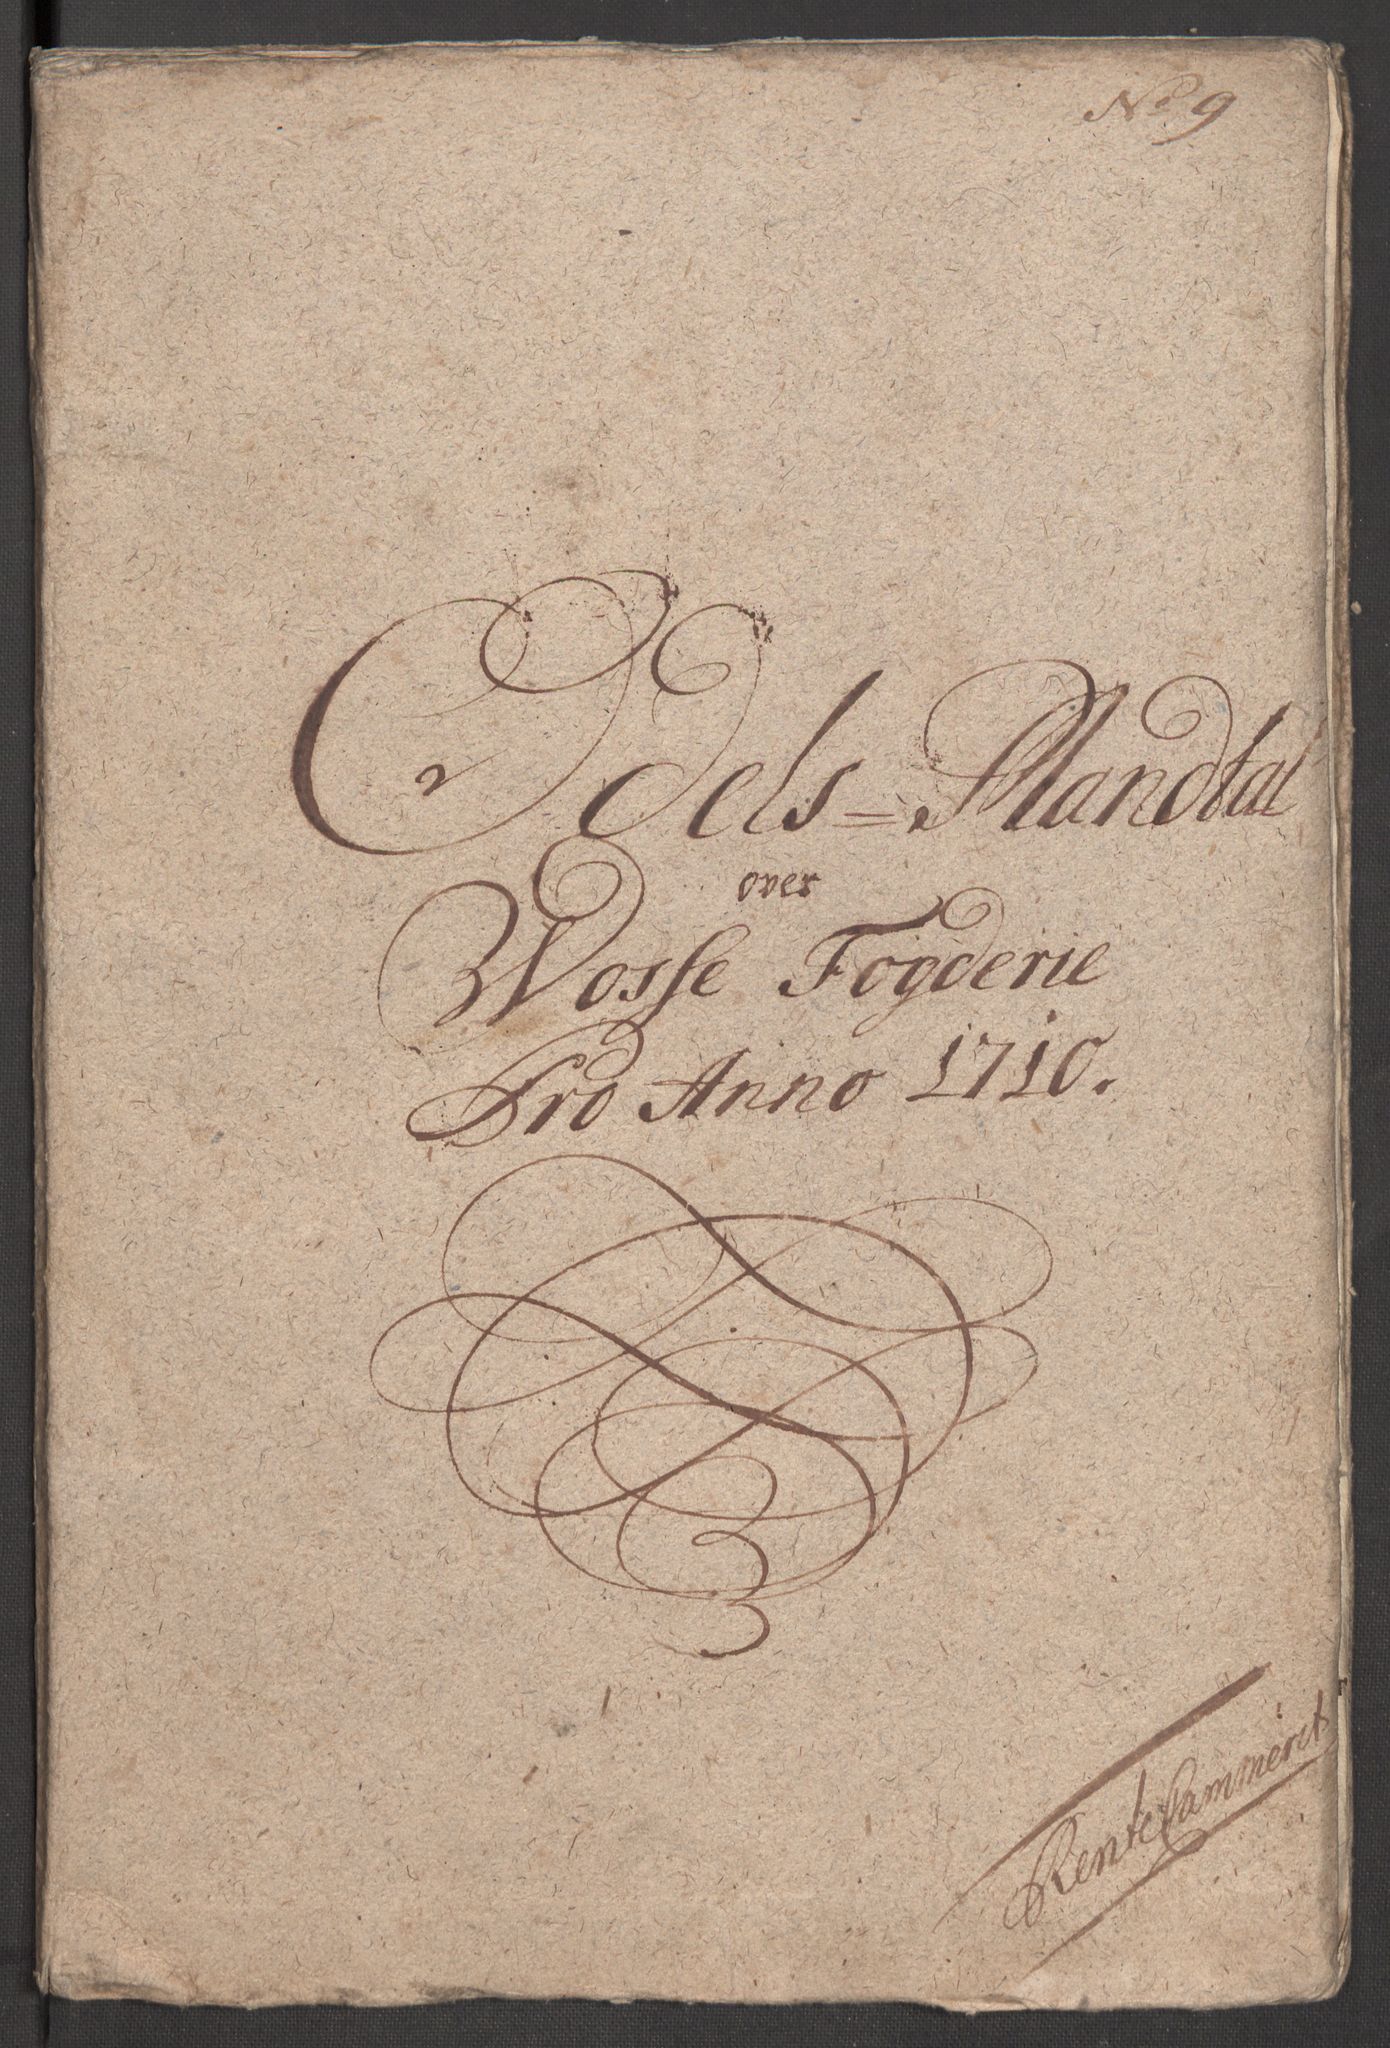 No 9
Odels-Mandtal
over
Wosse Fogderie
Pro Anno 1710.
RenteCammeret